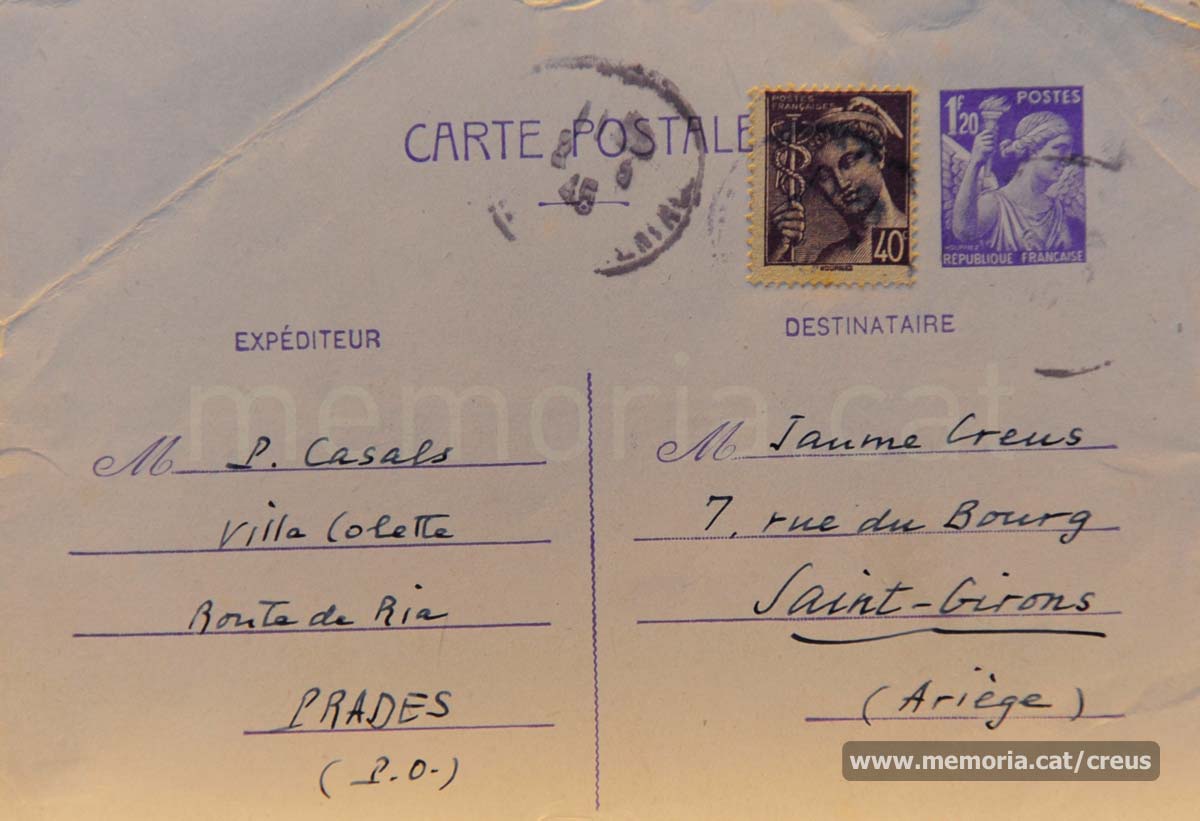 CARTE POSTALE
POSTES FRANÇAISES
40c
1F20 POSTES
RÉPUBLIQUE FRANÇAISE
EXPÉDITEUR
M P. Casals
Villa Colette
Route de Ria
PRADES
(P.O.)
DESTINATAIRE
M Jaume Creus
7, rue du Bourg
Saint-Girons
(Ariège)
memoria.cat
www.memoria.cat/creus